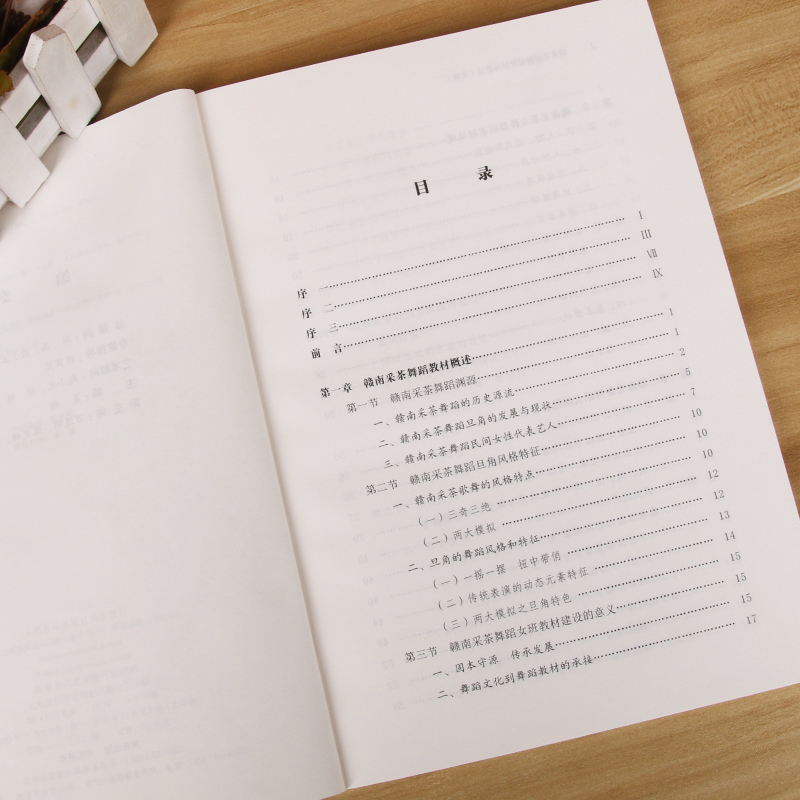 目 录
序 一 …… I
序 二 …… III
序 三 …… VII
前 言 …… IX
第一章 赣南采茶舞蹈教材概述 …… 1
第一节 赣南采茶舞蹈渊源 …… 1
一、赣南采茶舞蹈的历史源流 …… 2
二、赣南采茶舞蹈旦角的发展与现状 …… 5
三、赣南采茶舞蹈民间女性代表艺人 …… 7
第二节 赣南采茶舞蹈旦角风格特征 …… 10
一、赣南采茶歌舞的风格特点 …… 10
（一）三奇三绝 …… 10
（二）两大模拟 …… 12
二、旦角的舞蹈风格和特征 …… 12
（一）一摇一摆 扭中带俏 …… 13
（二）传统表演的动态元素特征 …… 14
（三）两大模拟之旦角特色 …… 15
第三节 赣南采茶舞蹈女班教材建设的意义 …… 15
一、固本守源 传承发展 …… 15
二、舞蹈文化到舞蹈教材的承接 …… 17